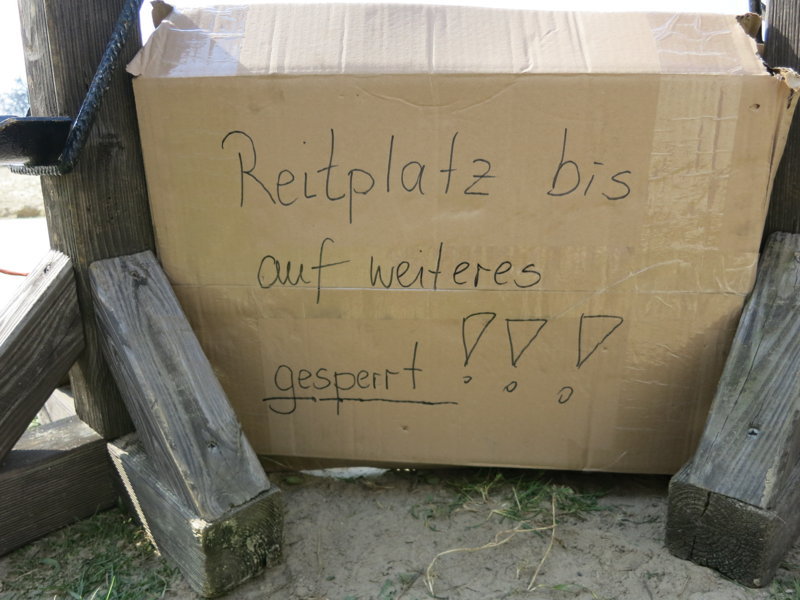 Reitplatz bis
auf weiteres
gesperrt !!!